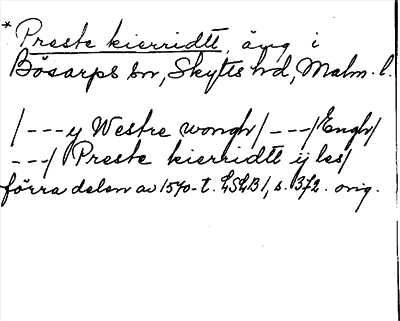 * Preste kierridtt, äng i
Bösarps sn, Skytts hd, Malm. l.
/---y Westre wongh/---/Engh/
---/ Preste kierridtt ij les/
förra delen av 1570-t. LSLB 1, s. 372. orig.